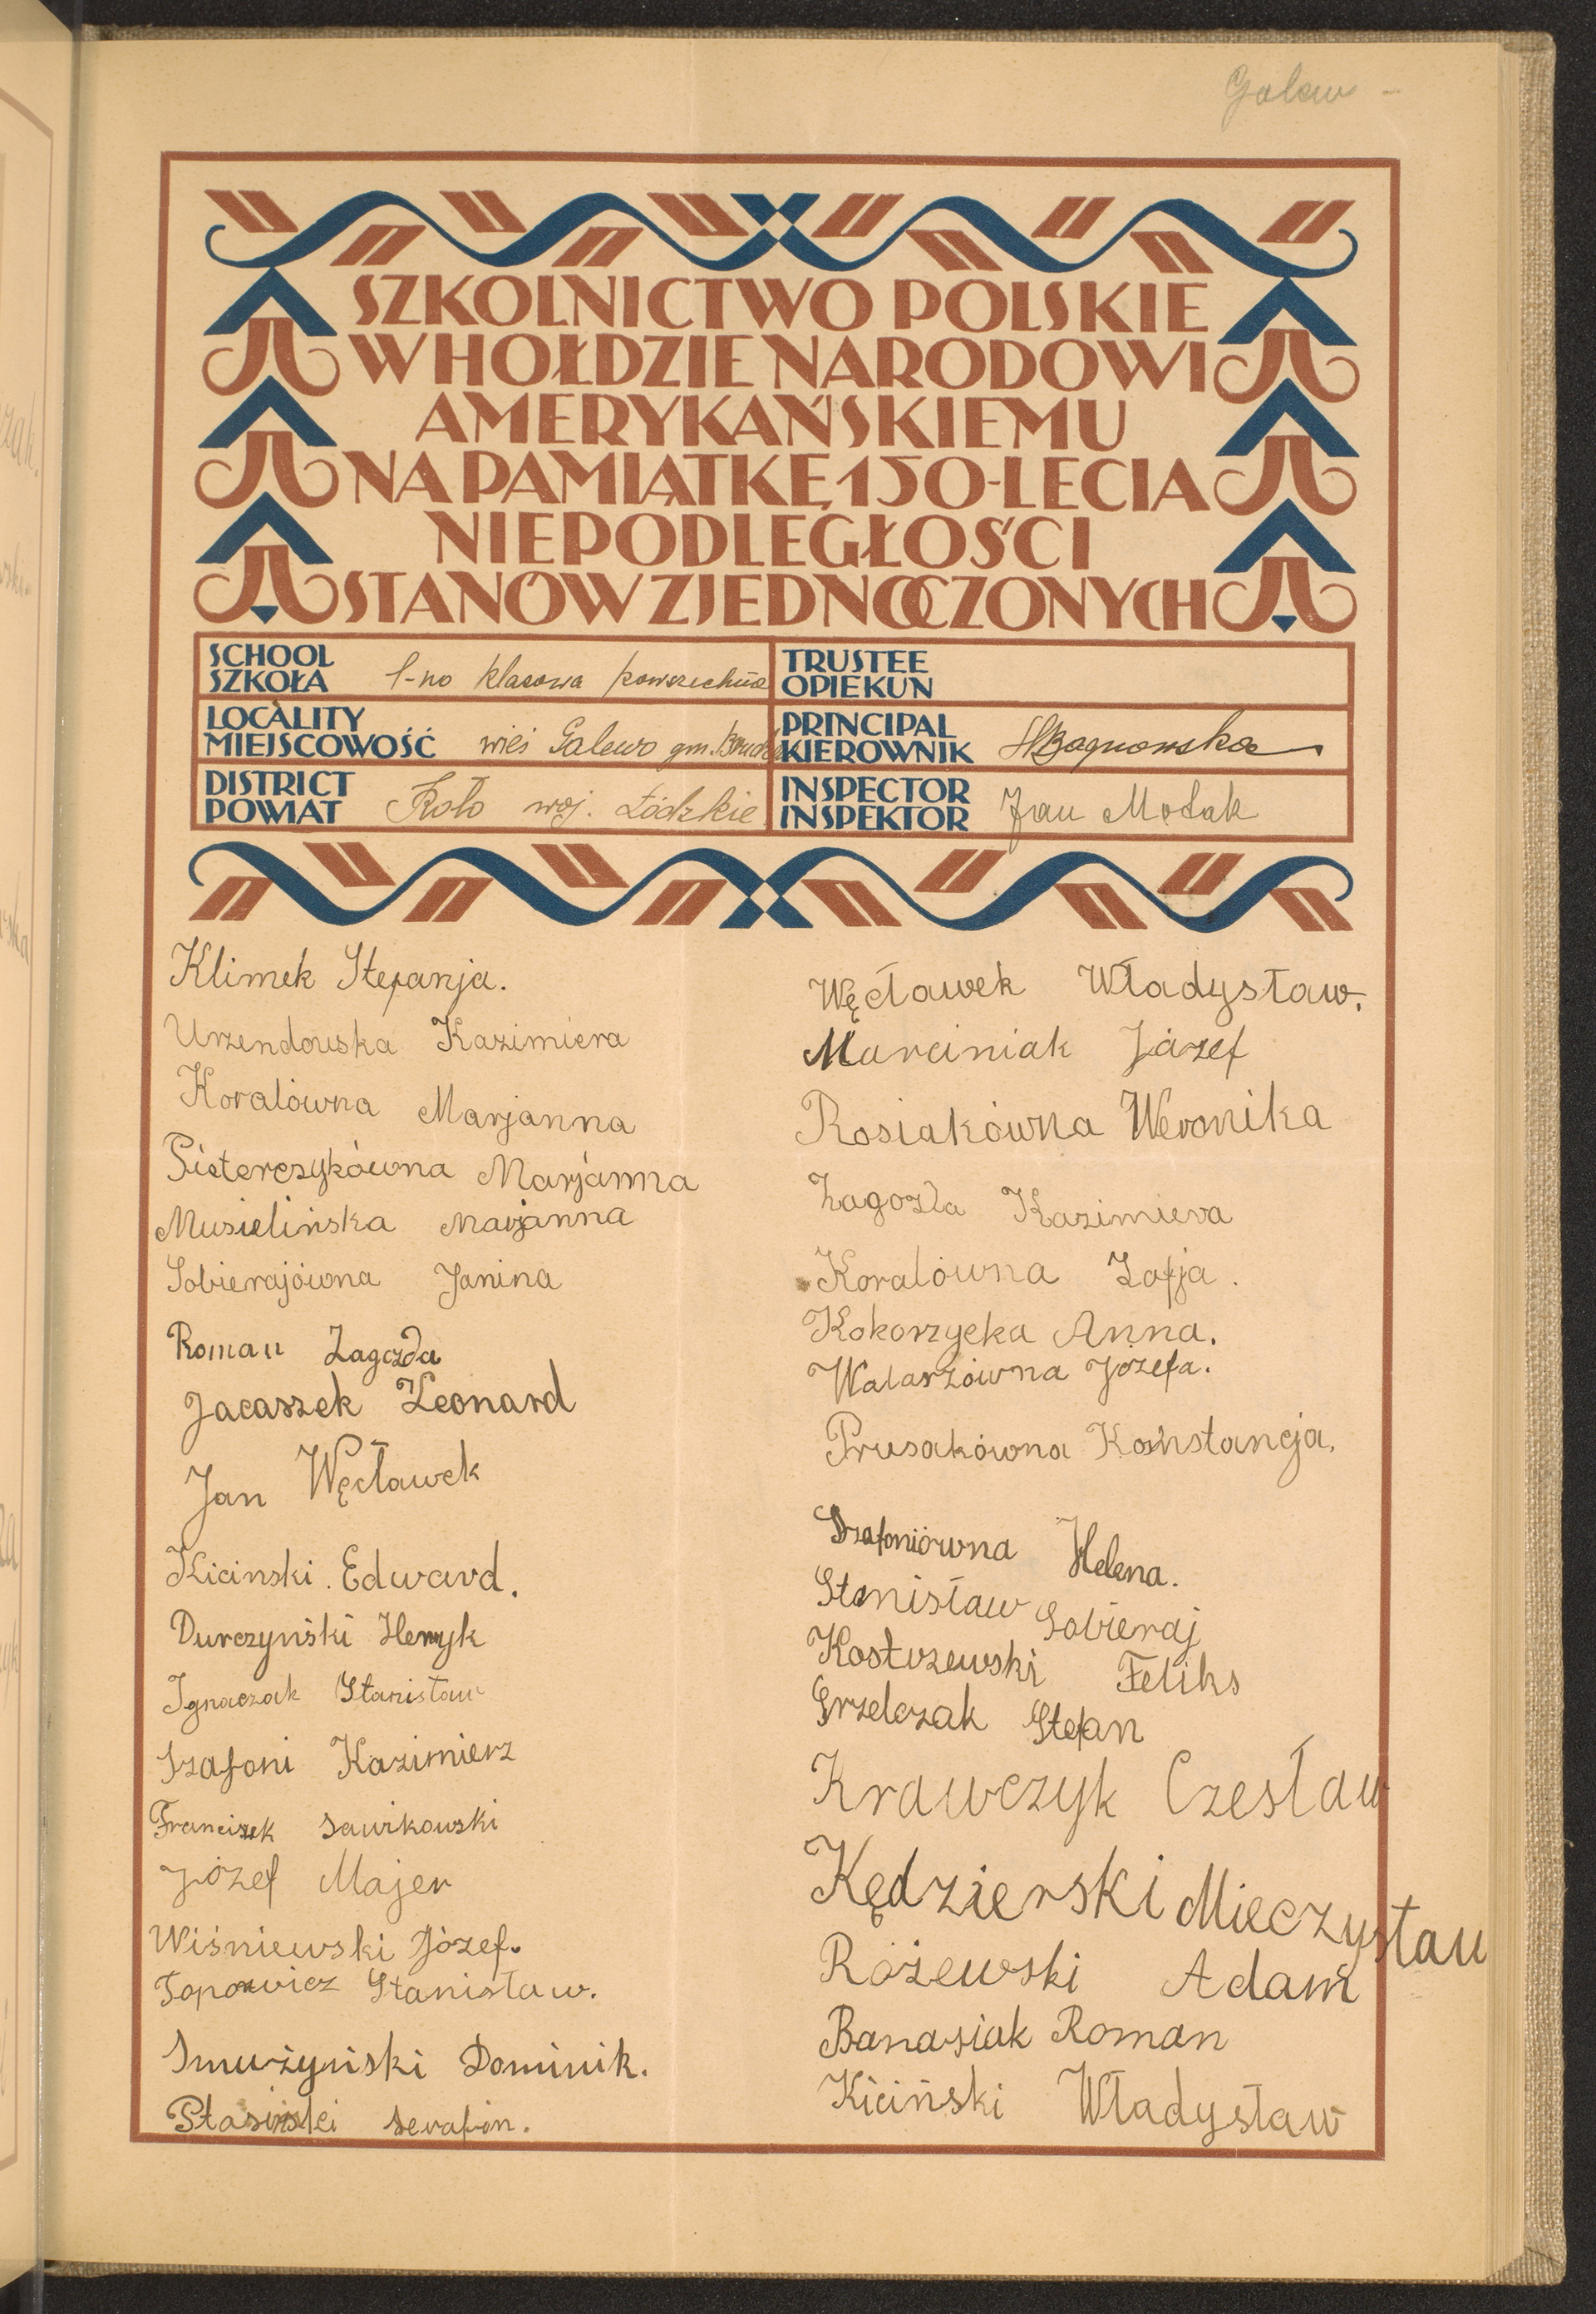 SZKOLNICTWO POLSKIE
W HOŁDZIE NARODOWI
AMERYKAŃSKIEMU
NA PAMIĄTKĘ 150-LECIA
NIEPODLEGŁOŚCI
STANÓW ZJEDNOCZONYCH
SCHOOL
SZKOŁA 1-no klasowa powszechna
LOCALITY
MIEJSCOWOŚĆ wieś Galewo gm.
DISTRICT
POWIAT Koło woj. Łódzkie
TRUSTEE
OPIEKUN
PRINCIPAL
KIEROWNIK
INSPECTOR
INSPEKTOR Jan
Klimek Stefanja.
Urzendowska Kazimiera
Koralówna Marjanna
Pieterczykówna Marjanna
Musielińska Marjanna
Sobierajówna Janina
Roman Zagozda
Jacaszek Leonard
Jan Węcławek
Kicinski. Edward.
Durczyński Henryk
Ignaczak Stanisław
Szafoni Kazimierz
Franciszek Sawikowski
Józef Majer
Wiśniewski Józef.
Stanisław.
Smużyński Dominik.
Stasiński Serafin.
Węcławek Władysław.
Marciniak Józef
Rosiakówna Weronika
Zagozda Kazimiera
Koralówna Zofja.
Kokorzycka Anna.
Walarzówna Józefa.
Prusakówna Konstancja.
Szafoniówna Helena.
Stanisław Sobieraj
Kostrzewski Feliks
Grzelczak Stefan
Krawczyk Czesław
Kędzierski Mieczysław
Różewski Adam
Banasiak Roman
Kiciński Władysław